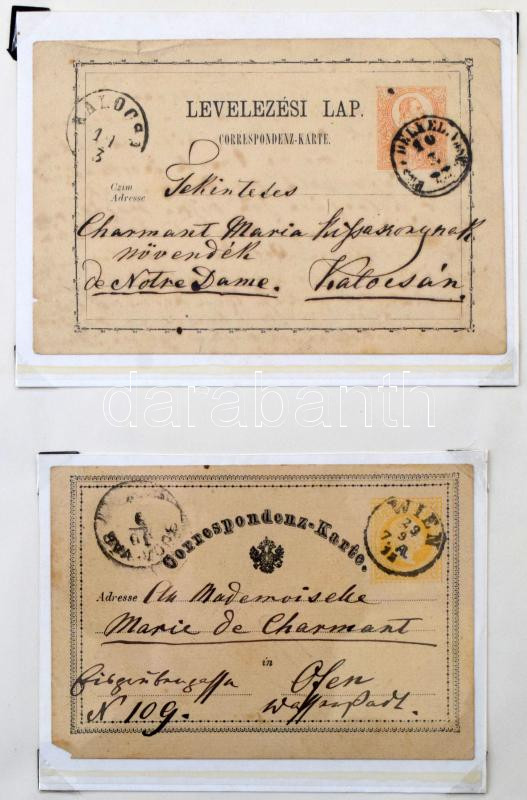 LEVELEZÉSI LAP.
CORRESPONDENZ-KARTE.
KALOCSA
11
3
10
Czim
Adresse
Tekintetes
Charmant Maria kisasszonynak
növendék
de Notre Dame. Kalocsán.
darabanth
Correspondenz-Karte.
WIEN
29
9
Adresse A Mademoiselle
Marie de Charmant
in
Ofen
N 109. Wasserstadt.